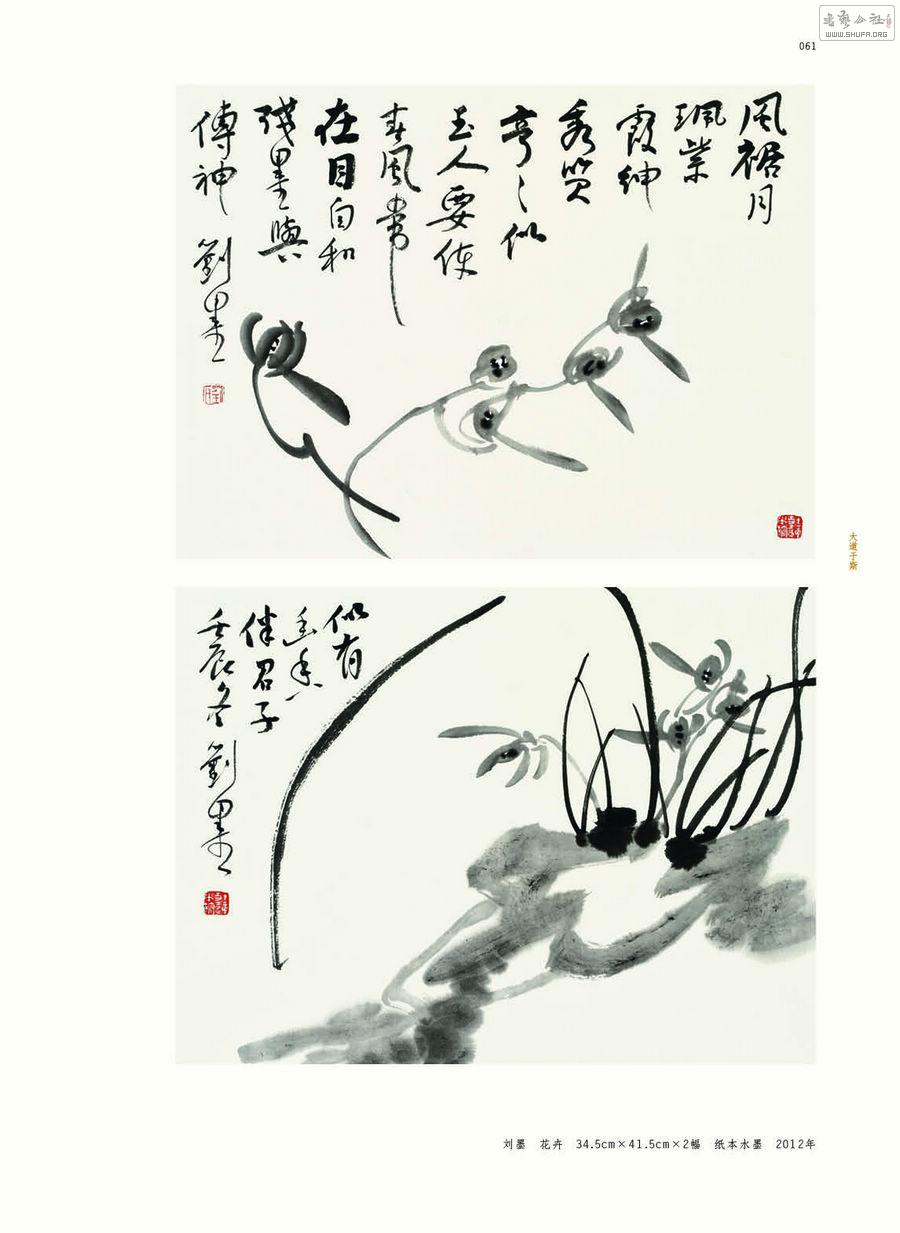 WWW.SHUFA.ORG
061
風裾月
珮紫
霞紳
秀質
亭亭似
玉人要使
春風常
在目自和
殘墨與
傳神
劉墨
大道于斯
似有
幽香
伴君子
壬辰冬
劉墨
刘墨 花卉 34.5cm×41.5cm×2幅 纸本水墨 2012年